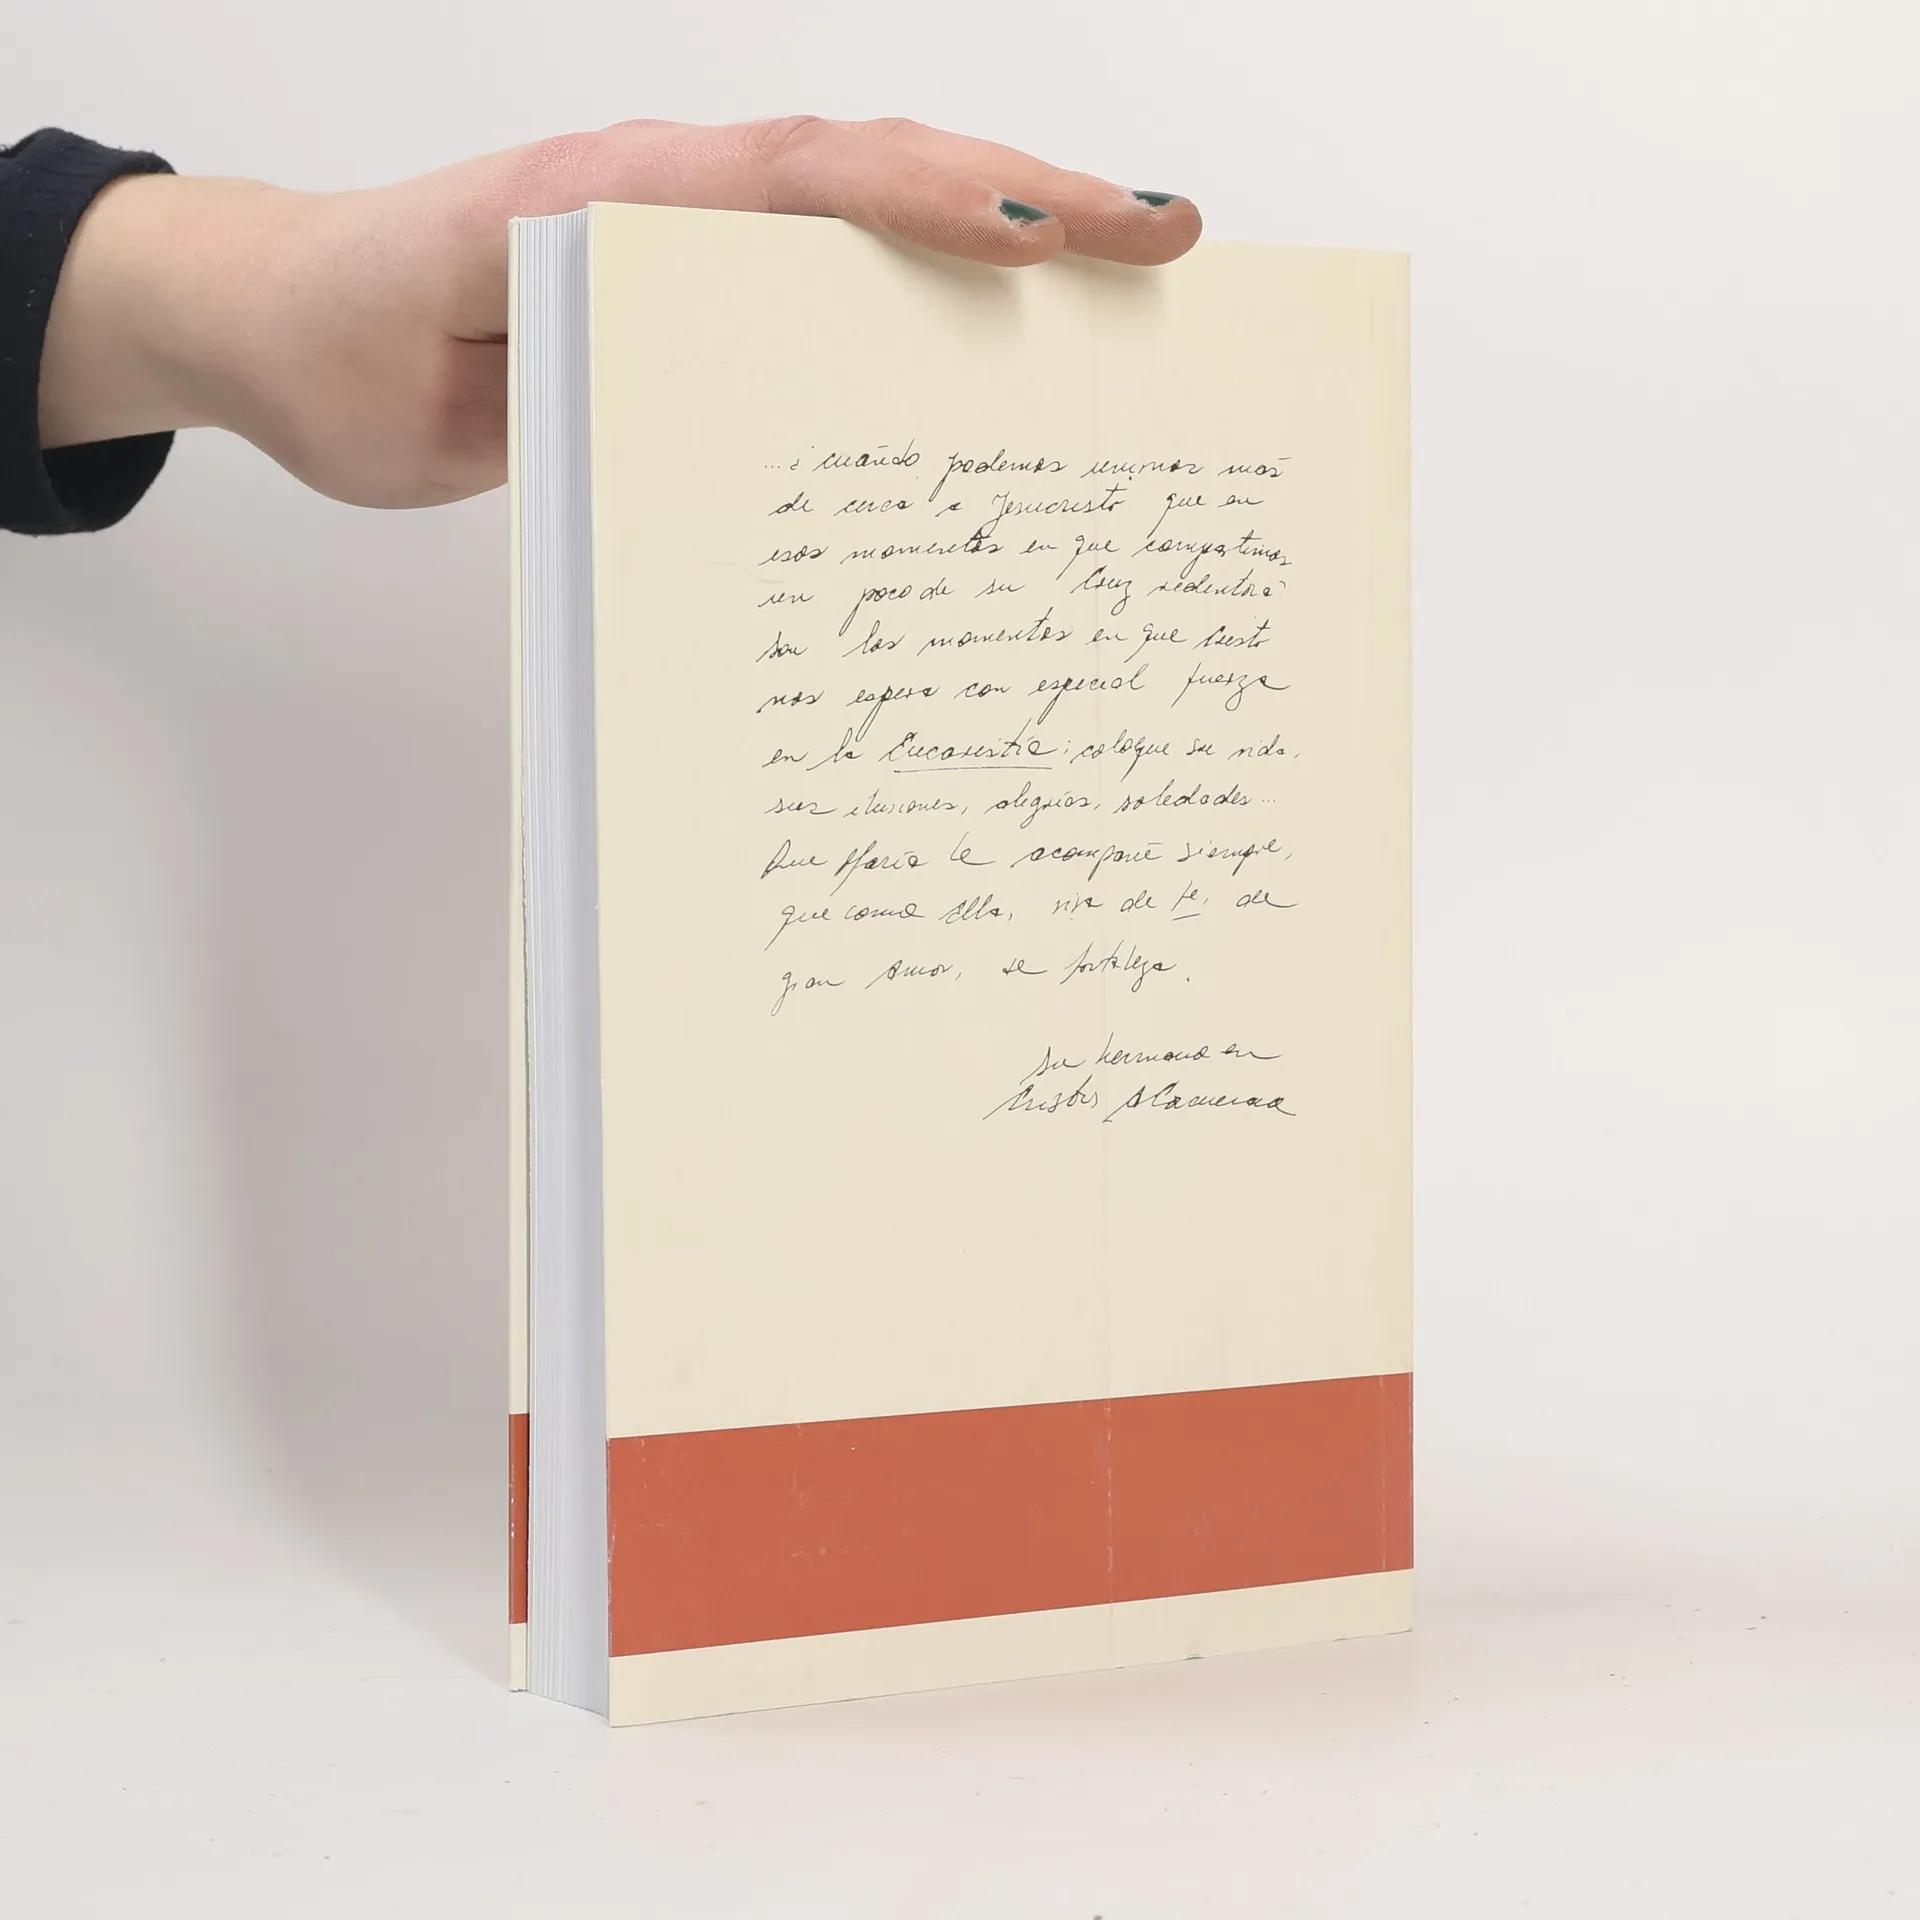 ...¿cuándo podemos unirnos más
de cerca a Jesucristo que en
esos momentos en que compartimos
un poco de su Cruz redentora?
Son los momentos en que Cristo
nos espera con especial fuerza
en la Eucaristía; coloque su vida,
sus ilusiones, alegrías, soledades...
Que María le acompañe siempre,
que como Ella, viva de fe, de
gran amor, de fortaleza.
Su hermano en
Cristo,